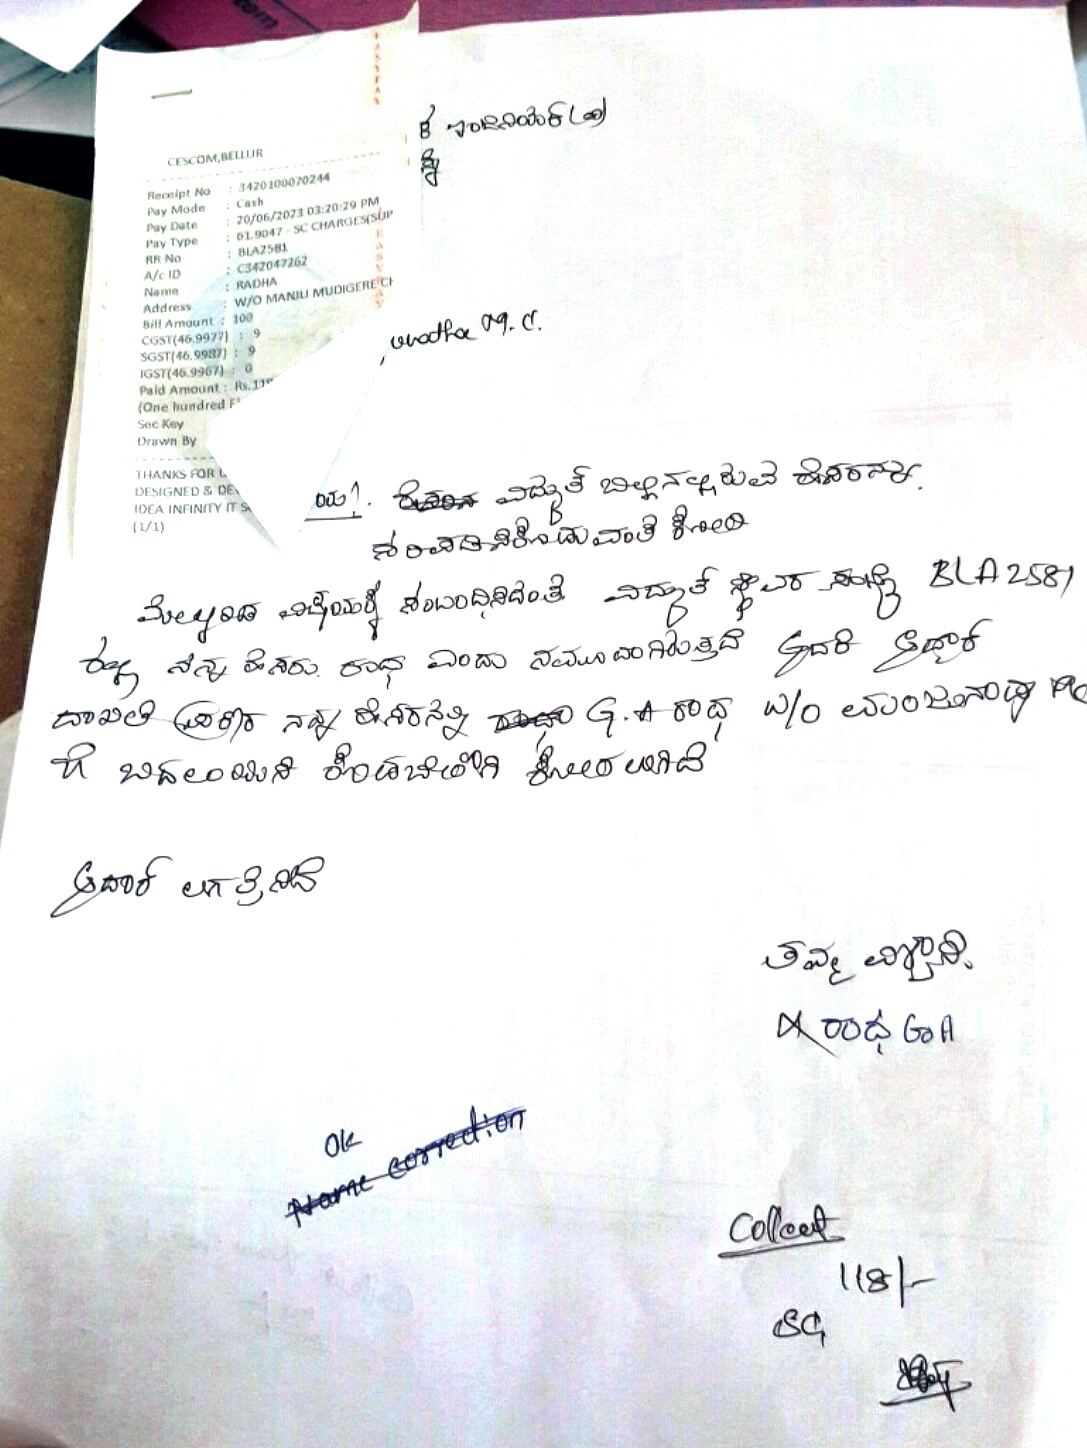 EASYPAY
CESCOM,BELLUR
Receipt No : 3420100070244
Pay Mode : Cash
Pay Date : 20/06/2023 03:20:29 PM
Pay Type : 61.9047 - SC CHARGES(SUP
RR No : BLA2581
A/c ID : C342047262
Name : RADHA
Address : W/O MANJU MUDIGERE CH
Bill Amount : 100
CGST(46.9977) : 9
SGST(46.9987) : 9
IGST(46.9967) : 0
Paid Amount : Rs.118
(One hundred
Sec Key
Drawn By
THANKS FOR
DESIGNED & DE
IDEA INFINITY IT
(1/1)
M.C.
ವಿದ್ಯುತ್ ಬಿಲ್ಲಿನಲ್ಲಿರುವ ಹೆಸರನ್ನು
ಸರಿಪಡಿಸಿಕೊಡುವಂತೆ ಕೋರಿ
ಮೇಲ್ಕಂಡ ವಿಷಯಕ್ಕೆ ಸಂಬಂಧಿಸಿದಂತೆ ವಿದ್ಯುತ್ ಸ್ಥಾವರ ಸಂಖ್ಯೆ BLA 2581
ನನ್ನ ಹೆಸರು ರಾಧ ಎಂದು ನಮೂದಾಗಿರುತ್ತದೆ ಆದರೆ ಆಧಾರ್
ದಾಖಲೆ ಪ್ರಕಾರ ನನ್ನ ಹೆಸರನ್ನು G.A ರಾಧ W/O ಮಂಜುನಾಥ
ಗೆ ಬದಲಾಯಿಸಿ ಕೊಡಬೇಕಾಗಿ ಕೋರಲಾಗಿದೆ
ಆಧಾರ್ ಲಗತ್ತಿಸಿದೆ
ತಮ್ಮ ವಿಶ್ವಾಸಿ
ರಾಧ G A
Ok
Name correction
Collect
118/-
SC